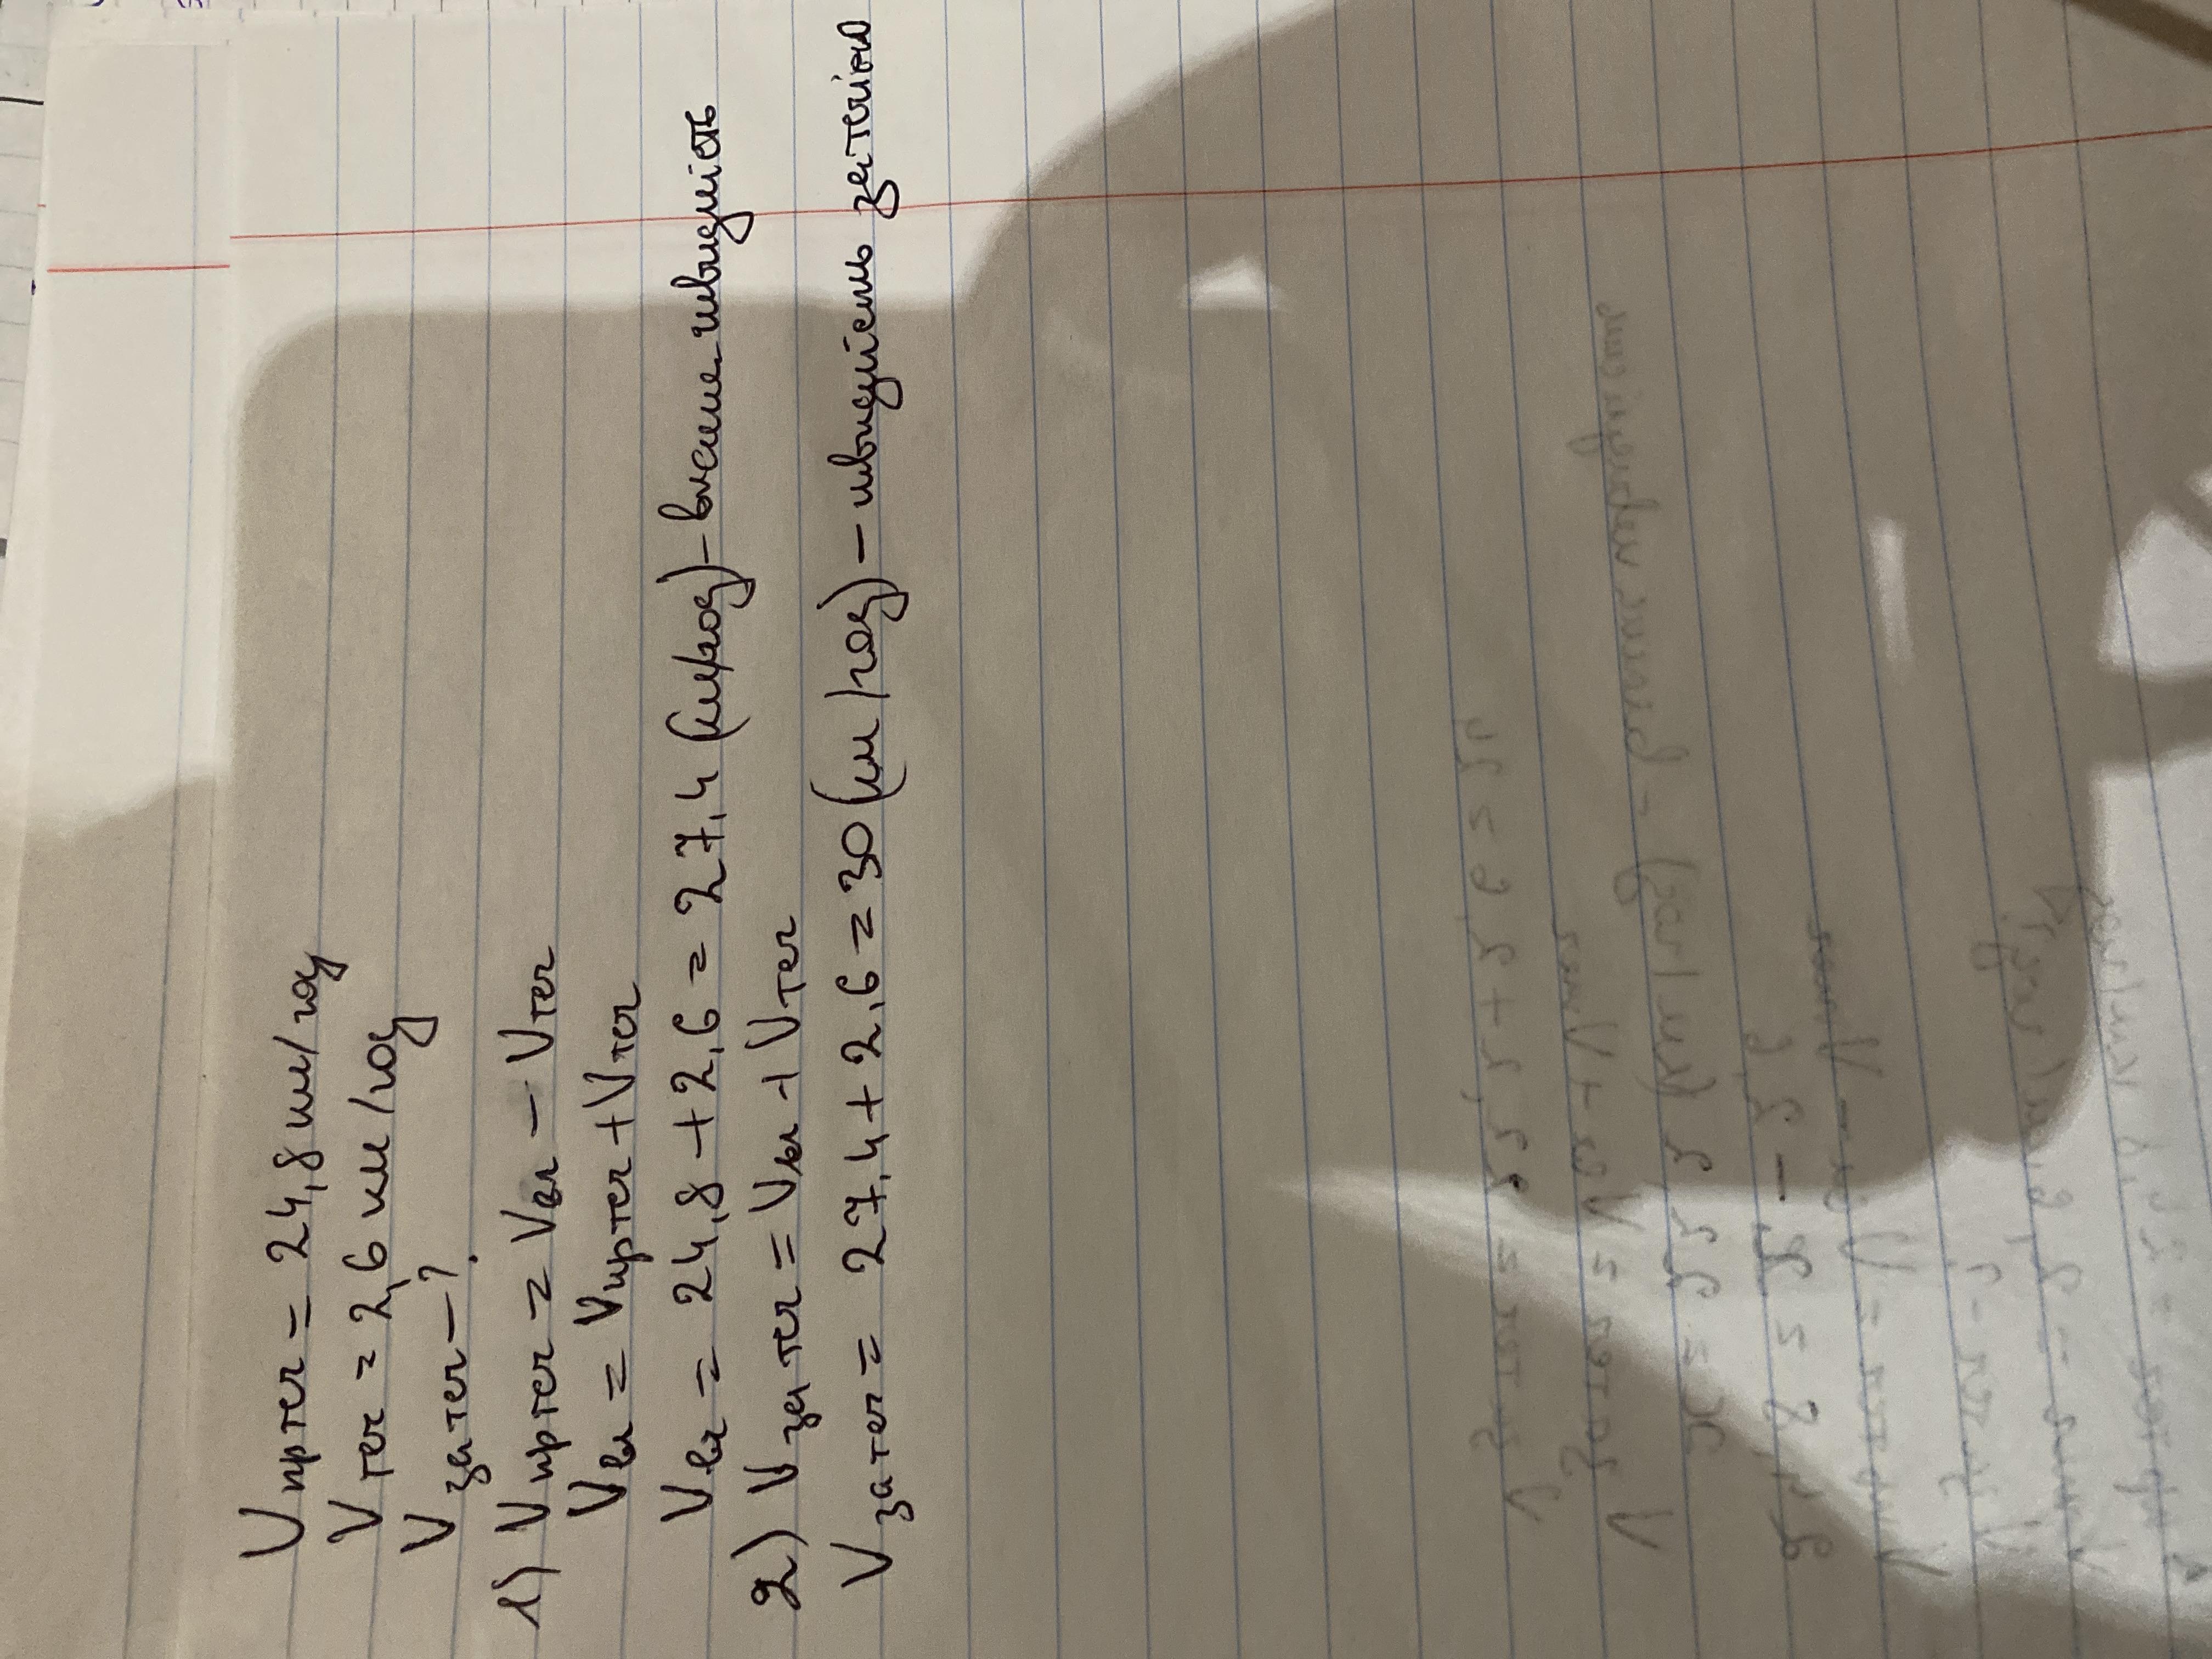 Vпртеч = 24,8 км/год
Vтеч = 2,6 км/год
Vзатеч - ?
1) Vпртеч = Vвл - Vтеч
Vвл = Vпртеч + Vтеч
Vвл = 24,8 + 2,6 = 27,4 (км/год) - власн. швидкість
2) Vзатеч = Vвл + Vтеч
Vзатеч = 27,4 + 2,6 = 30 (км/год) - швидкість за течією